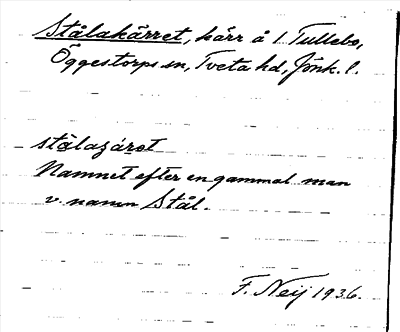 Stålakärret, kärr å 1 Tullebo,
Öggestorps sn, Tveta hd, Jönk. l.
stålaʒáret
Namnet efter en gammal man
v. namn Stål.
F. Neij 1936.